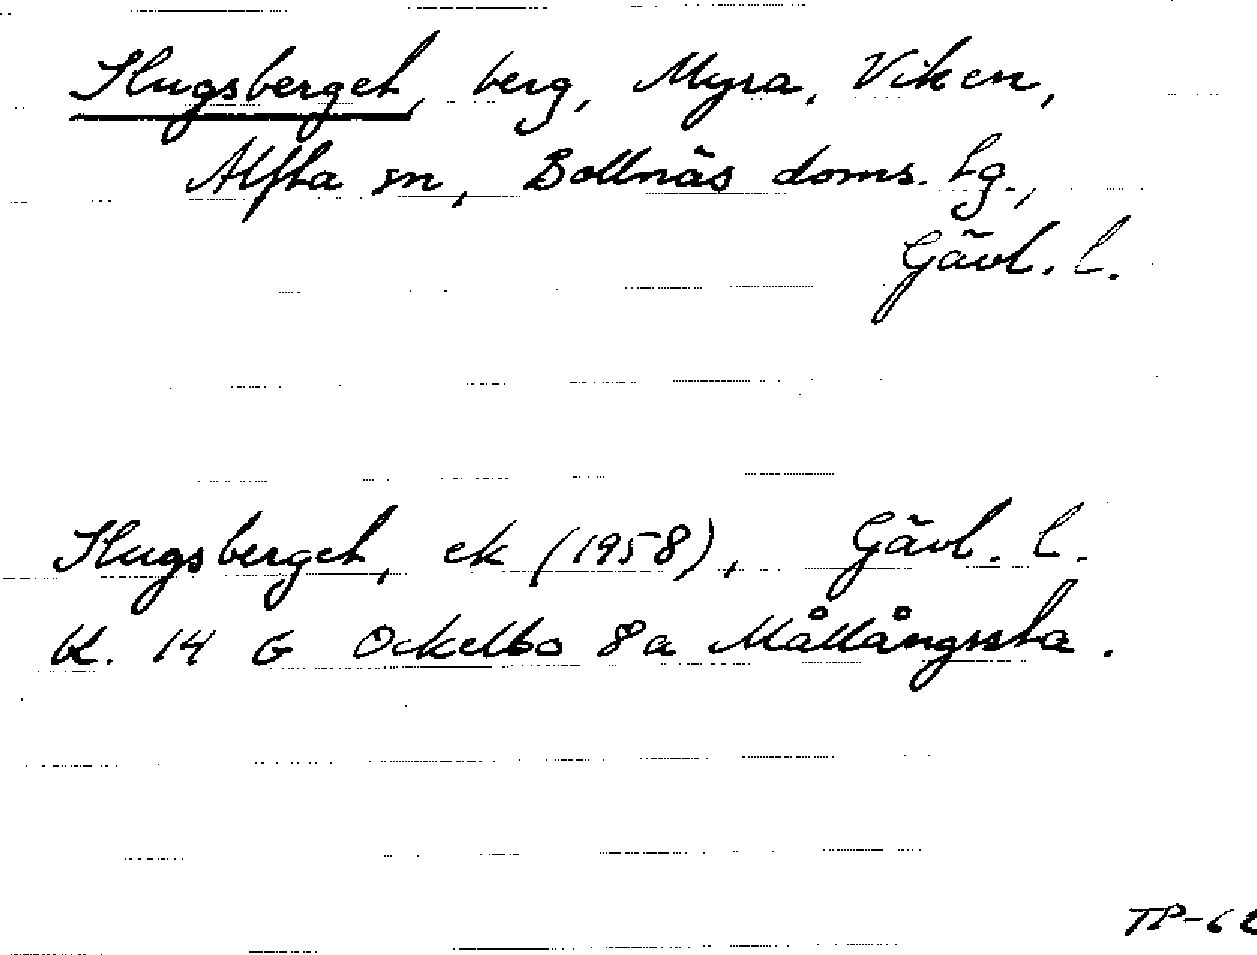 Flugsberget, berg, Myra, Viken,
Alfta sn, Bollnäs doms. tg.,
Gävl. l.
Flugsberget, ek (1958), Gävl. l.
K. 14 G Ockelbo 8a Mållångssta.
TP-62